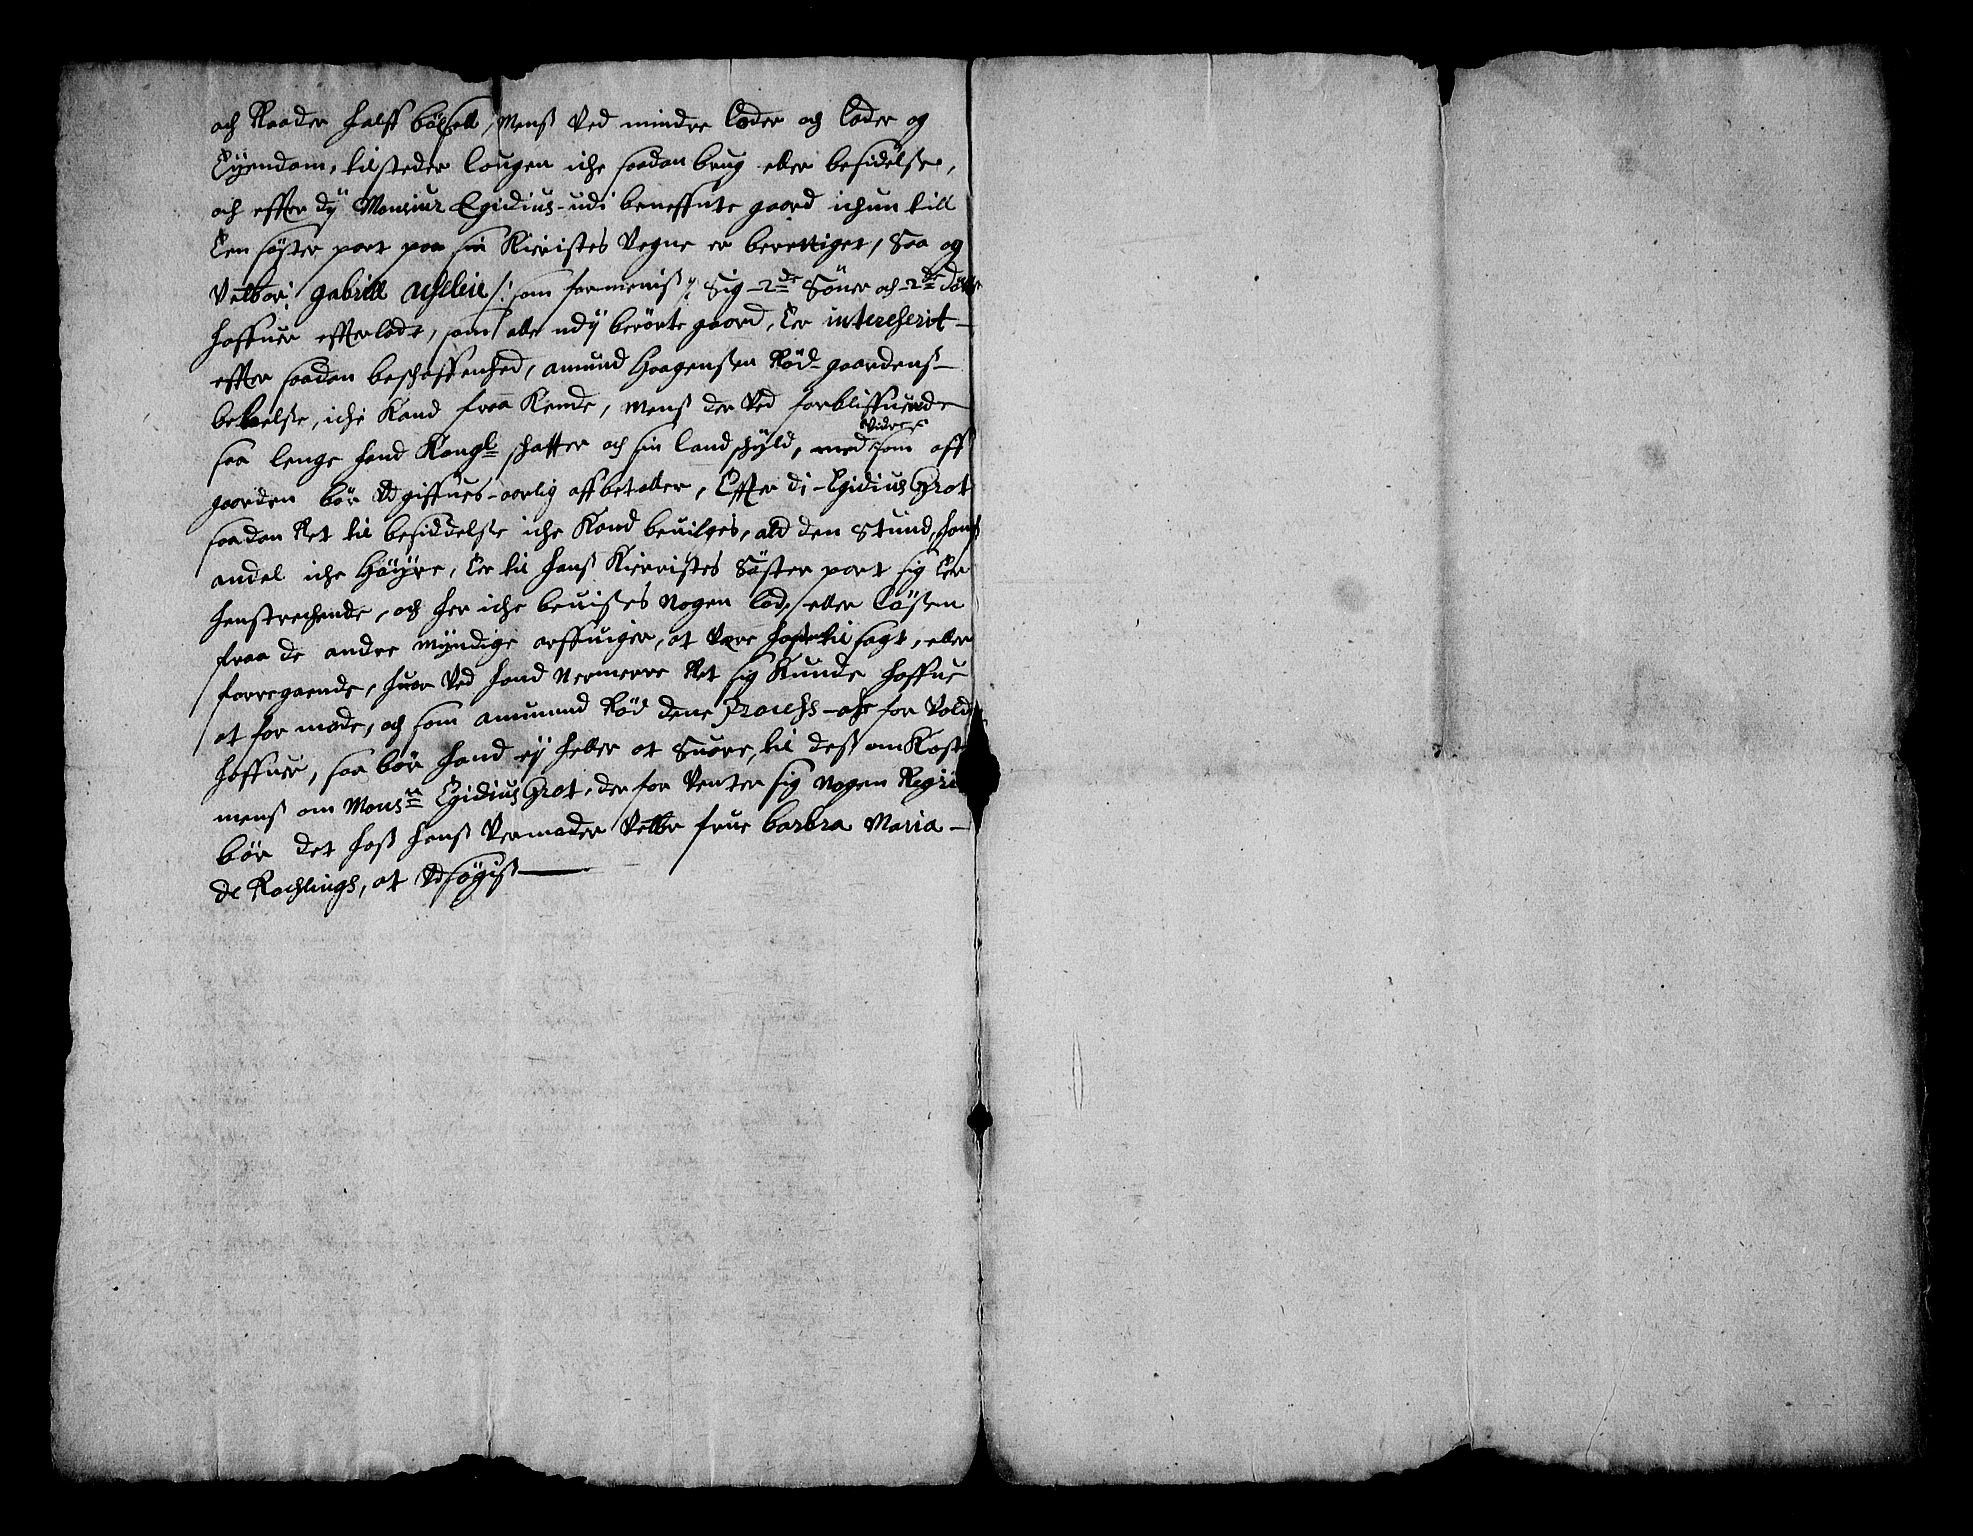 och Raader halff böxell, mens Ved mindre Loder och Loder og
Eyendom, tilsteder Lougen iche saadan brug eller besidelse,
och effter dy Monsiur Egidius udi beneffnte gaard ichun till
Een söster part paa sin Kieristes Vegne er berettiget, Saa og
Velbor: gabriell Achelleie /: som formenis :/ Sig 2de Söner och 2de Dötter
haffuer effterladt, som alle udy berörte gaard, Er interesserit
effter saadan beschaffenhed, amund Haagensen Röd gaardens
besidelse, iche Kand fraa Kiende, mens der Ved forbliffuende
saa lenge hand Kongl: schatter och sin landschyld, med Videre som aff
gaarden bör Udgiffues aarlig affbetaller, Effter di Egidius Grot
saadan Ret til besiddelse iche Kand beuilges, ald den Stund, hans
andel iche Höyre, Er til hans Kieristes Söster part sig Er
henstrechende, och her iche beuises Nogen Lod, eller Lösen
fraa de andre myndige arffuiger, at Vere hannem til sagt, eller
forregaaende, huor Ved hand Nermere Ret sig Kunde haffue
at formode, och som amund Röd dene Process for Vold
haffuer, saa bör hand ey heller at Suare, til dess omKost
mens om Monsr Egidius Grot, der for Venter sig Nogen Regres
bör det hoss hans Vermoder Velbr frue barbra Maria
de Rochlings, at Udsögis